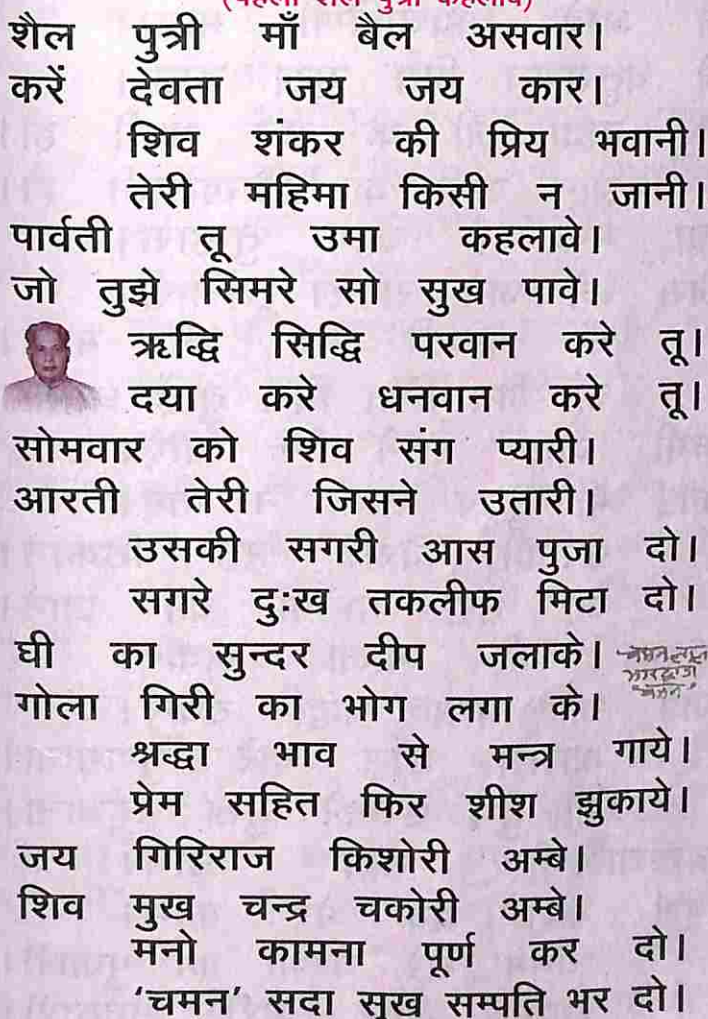 (पहली शैल पुत्री कहलावे)
शैल पुत्री माँ बैल असवार।
करें देवता जय जय कार।
शिव शंकर की प्रिय भवानी।
तेरी महिमा किसी न जानी।
पार्वती तू उमा कहलावे।
जो तुझे सिमरे सो सुख पावे।
ऋद्धि सिद्धि परवान करे तू।
दया करे धनवान करे तू।
सोमवार को शिव संग प्यारी।
आरती तेरी जिसने उतारी।
उसकी सगरी आस पुजा दो।
सगरे दुःख तकलीफ मिटा दो।
घी का सुन्दर दीप जलाके।
गोला गिरी का भोग लगा के।
श्रद्धा भाव से मन्त्र गाये।
प्रेम सहित फिर शीश झुकाये।
जय गिरिराज किशोरी अम्बे।
शिव मुख चन्द्र चकोरी अम्बे।
मनो कामना पूर्ण कर दो।
‘चमन’ सदा सुख सम्पति भर दो।